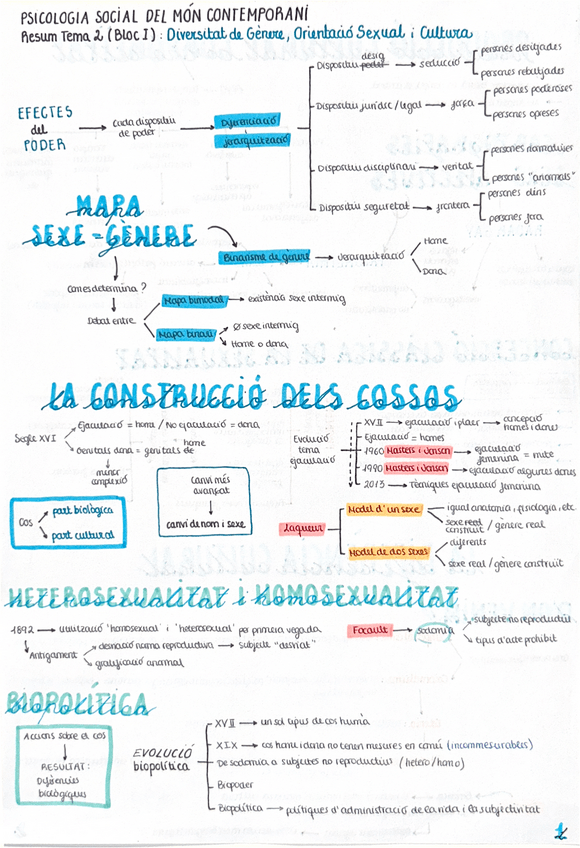 PSICOLOGIA SOCIAL DEL MÓN CONTEMPORANI
Resum Tema 2 (Bloc I): Diversitat de Gènere, Orientació Sexual i Cultura
EFECTES del PODER → Cada dispositiu de poder → Diferenciació jerarquització
Dispositiu desig → seducció
persones desitjades
persones rebutjades
Dispositiu jurídic/legal → força
persones poderoses
persones opreses
Dispositiu disciplinari → veritat
persones normalitzades
persones "anormals"
Dispositiu seguretat → frontera
persones dins
persones fora
MAPA
SEXE = GÈNERE
Binarisme de gènere → Jerarquització
Home
Dona
Com es determina?
Debat entre
Mapa bimodal → existència sexe intermig
Mapa binari
Ø sexe intermig
Home o dona
LA CONSTRUCCIÓ DELS COSSOS
Segle XVI
Ejaculació = home / No ejaculació = dona
Genitals dona = genitals de home
menor
Evolució tema ejaculació
XVII → ejaculació i plaer → concepció homes i dones
Ejaculació = homes
1960 Masters i Jonson → ejaculació femenina = mite
1990 Masters i Jonson → ejaculació algunes dones
2013 → Tècniques ejaculació femenina
Cos
part biològica
part cultural
Canvi més avançat
canvi de nom i sexe
Laqueur
Model d'un sexe
igual anatomia, fisiologia, etc.
sexe construït / gènere real
Model de dos sexes
diferents
sexe real / gènere construït
HETEROSEXUALITAT i HOMOSEXUALITAT
1892 → utilització 'homosexual' i 'heterosexual' per primera vegada
Antigament
desviació norma reproductiva → subjecte "desviat"
gratificació anormal
Focault → sodomia
subjecte no reproductiu
tipus d'acte prohibit
BIOPOLÍTICA
Accions sobre el cos
RESULTAT:
Diferències biològiques
EVOLUCIÓ biopolítica
XVII → un sol tipus de cos humà
XIX → cos home i dona no tenen mesures en comú (incommesurables)
De sodomia a subjectes no reproductius (hetero/homo)
Biopoder
Biopolítica → polítiques d'administració de la vida i la subjectivitat